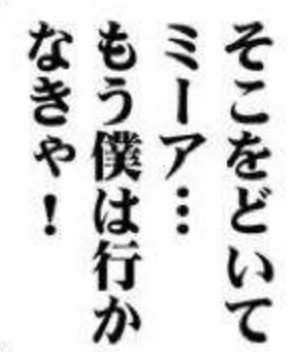 そこをどいて
ミーア…
もう僕は行か
なきゃ！